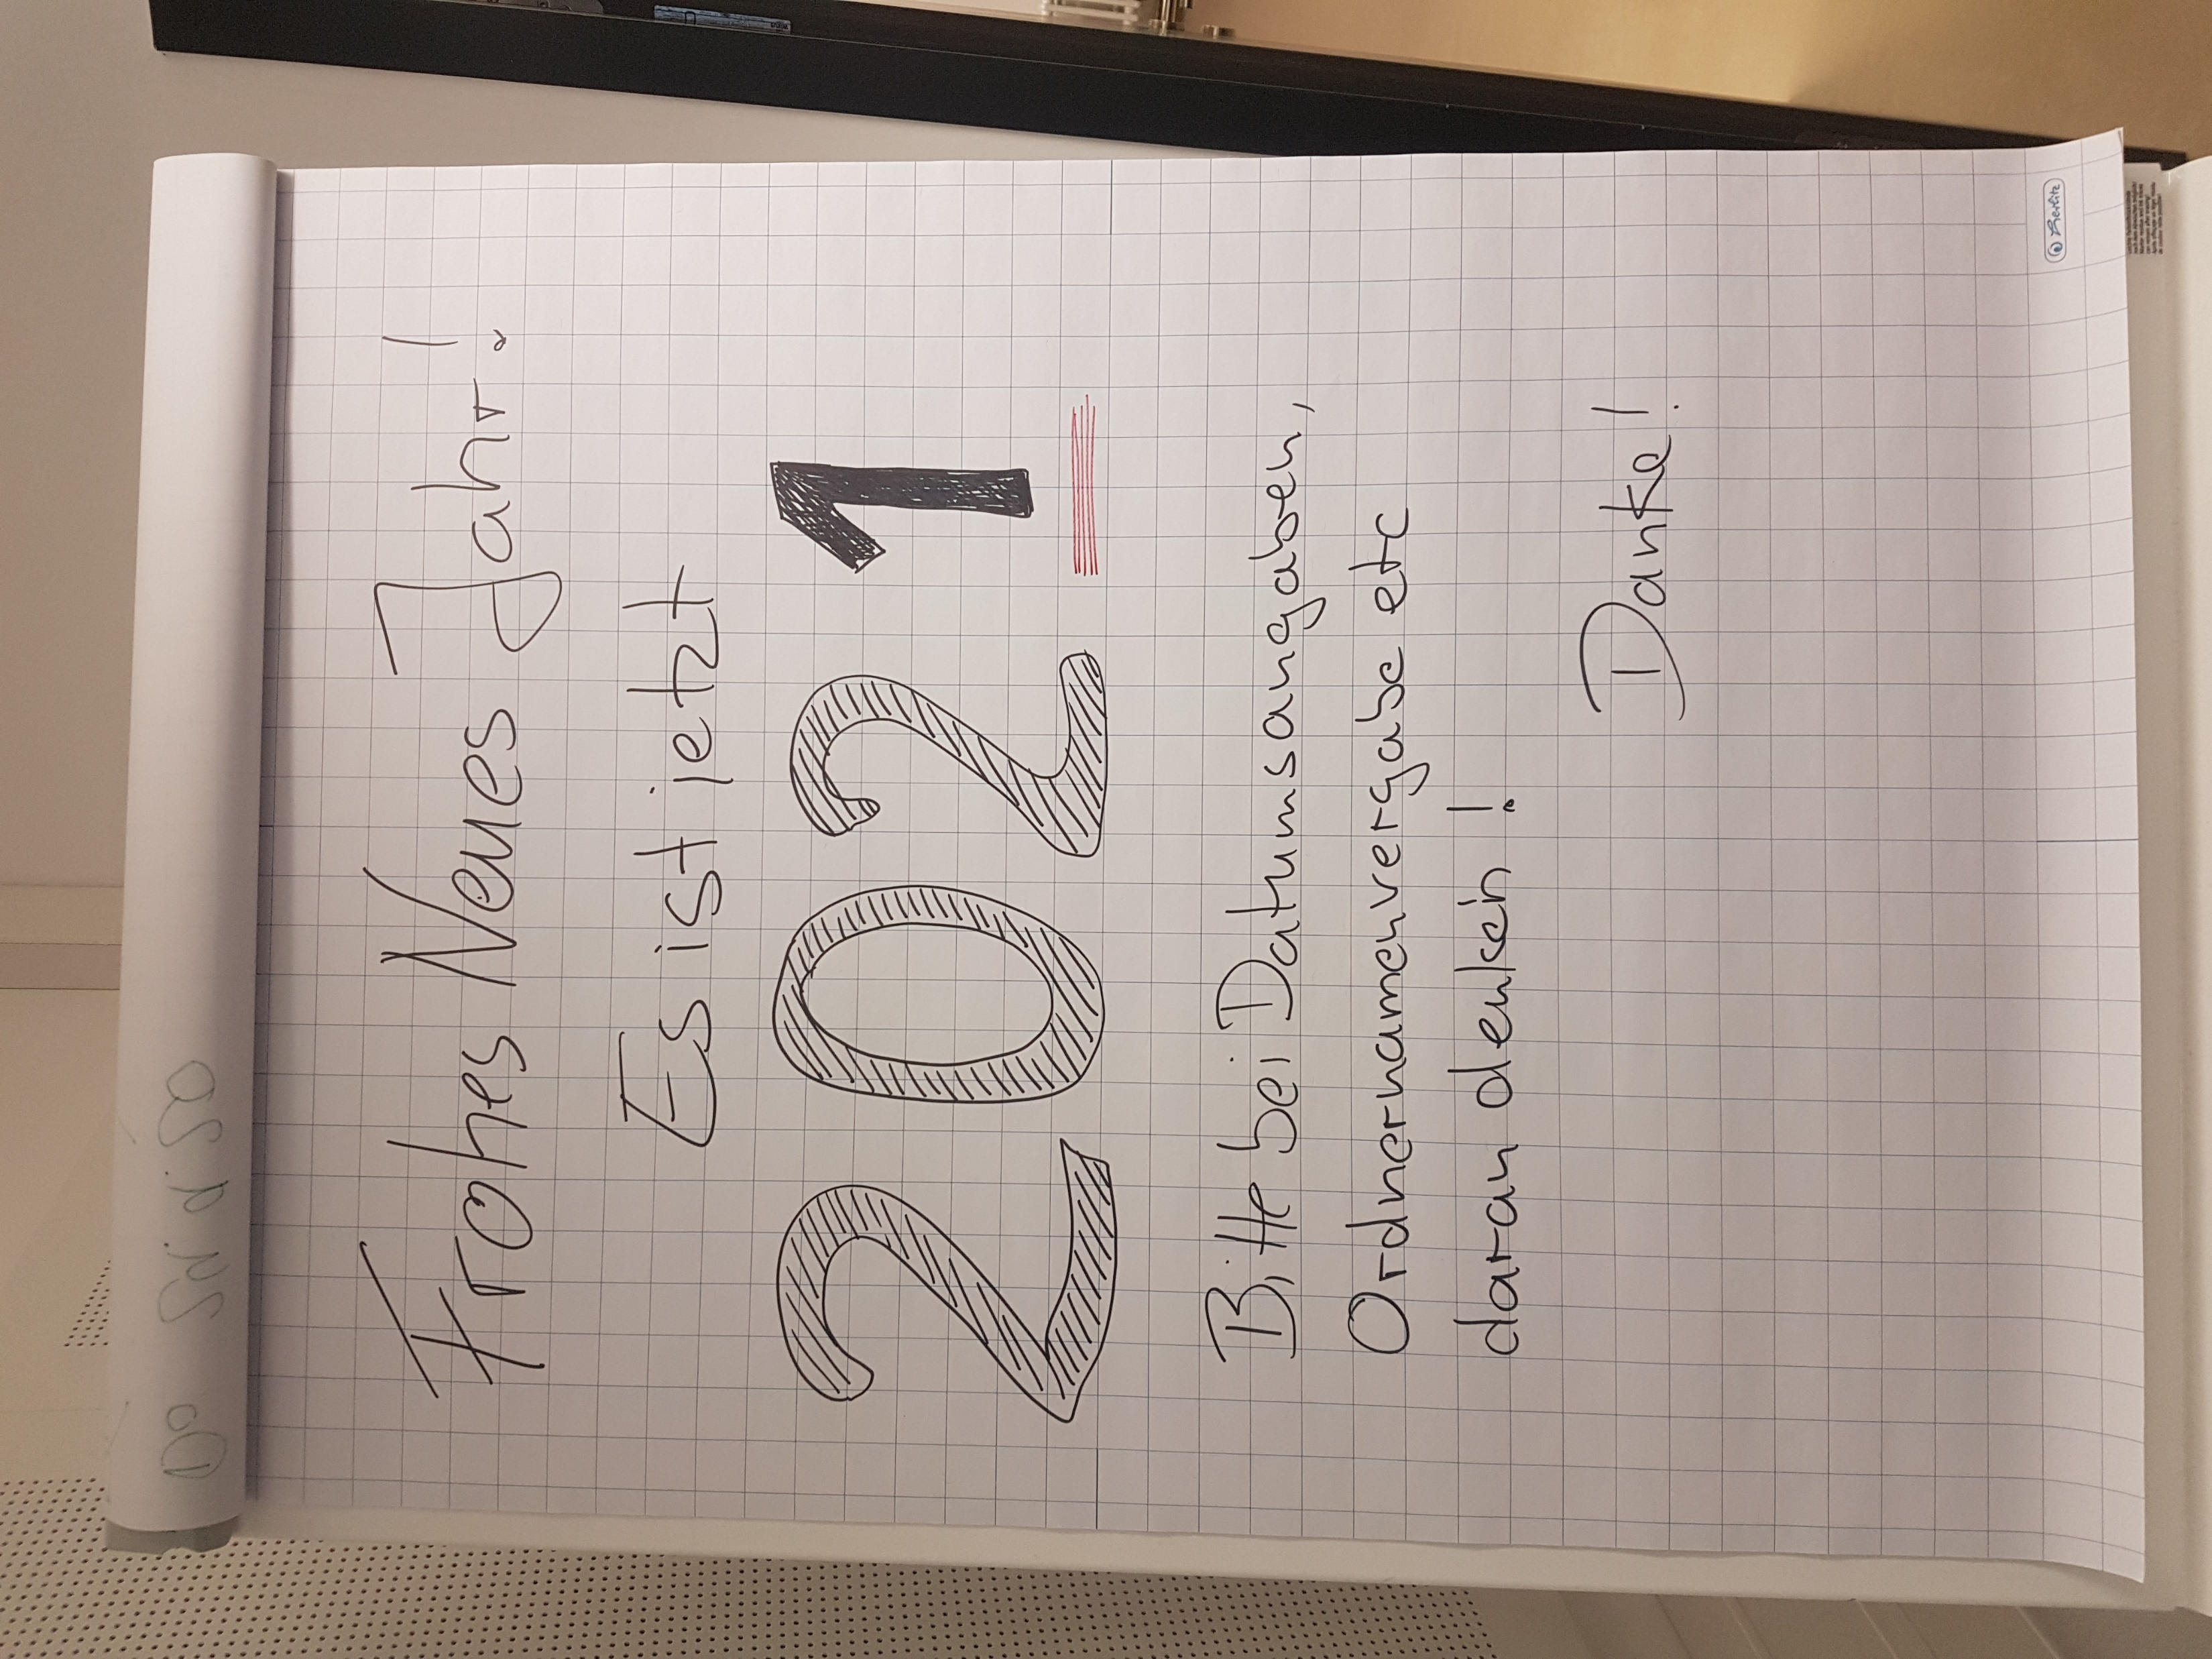 Frohes Neues Jahr!
Es ist jetzt
2021
Bitte bei Datumsangaben,
Ordnernamenvergabe etc
daran denken!
Danke!
herlitz